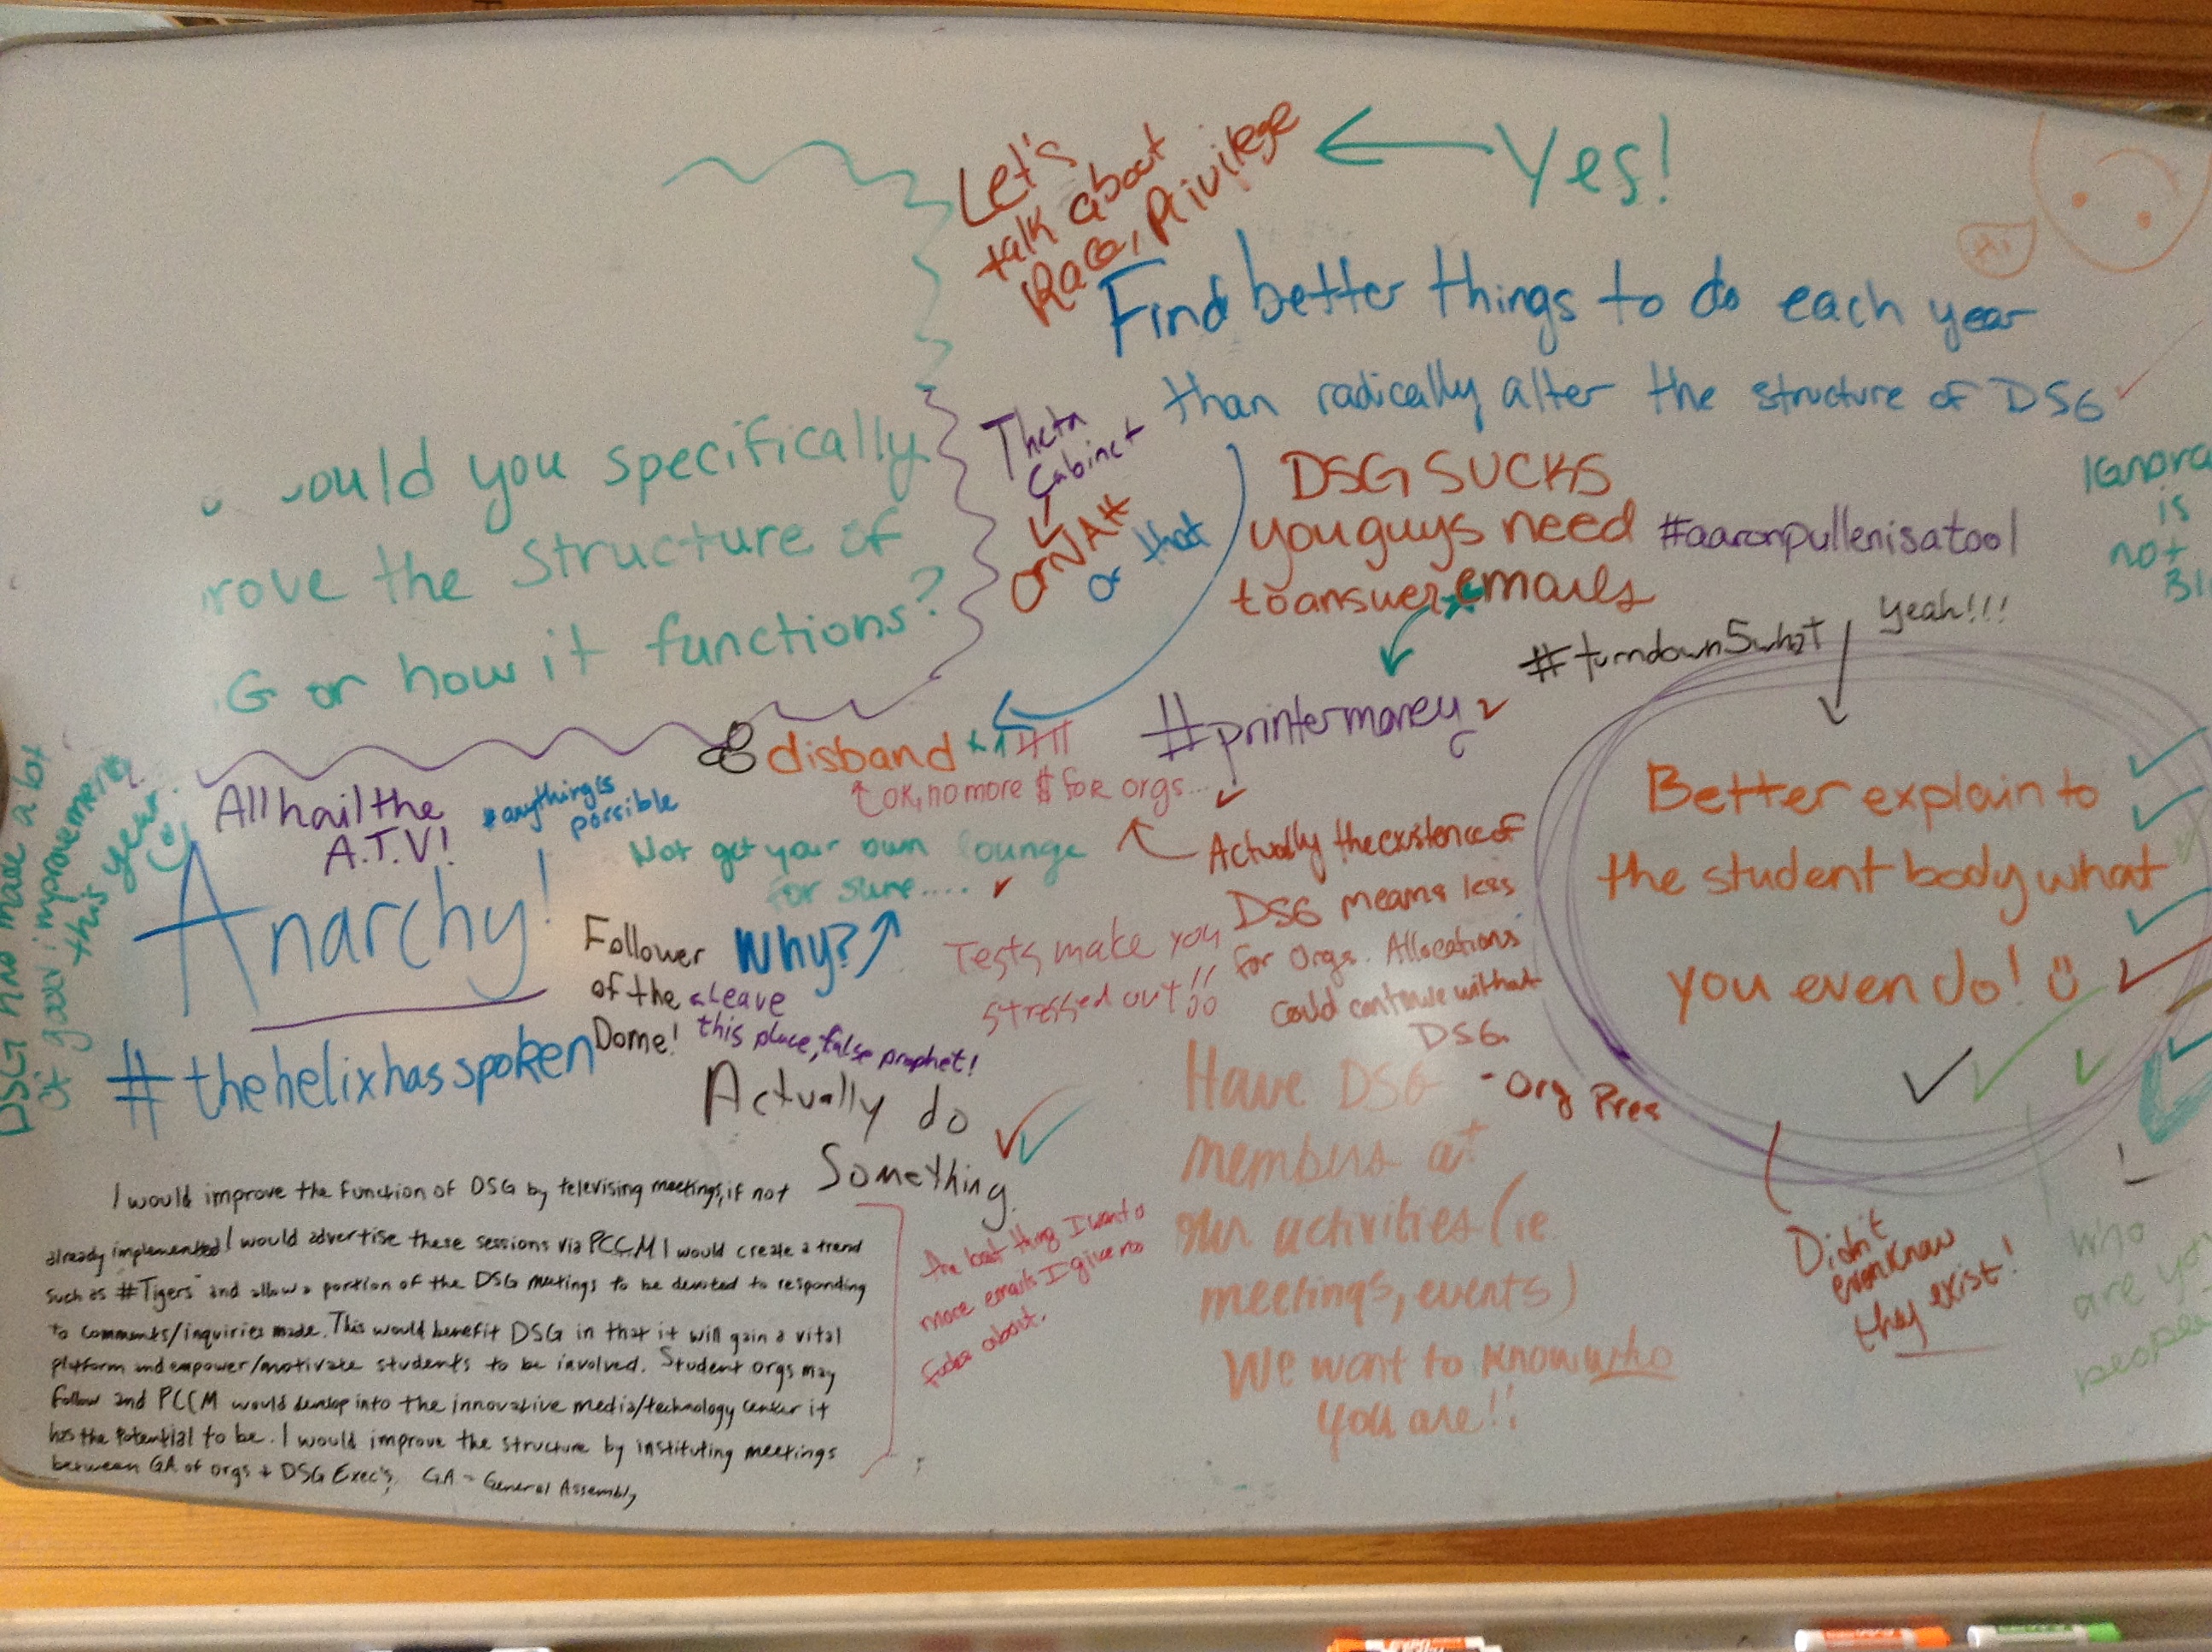 Let's
talk about
Race, Privilege
Yes!
Find better things to do each year
than radically alter the structure of DSG
would you specifically
rove the structure of
G or how it functions?
Theta
Cabinet
or NAH
or that
DSG SUCKS
you guys need
to answer emails
#aaronpullenisatool
is
not
#turndown5what
yeah!!!
#printermoney
disband +1
OK, no more $ for orgs...
Better explain to
the student body what
you even do!
Didn't
even know
they exist!
who
are you
people
All hail the
A.T.V!
#anythingis
possible
Not get your own lounge
for sure....
Actually the existence of
DSG means less
for orgs. Allocations
could continue without
DSG.
-Org Pres
DSG has made a lot
of good improvements
this year.
Anarchy!
#thehelixhasspoken
Follower
of the
Dome!
Why?
Leave
this place, false prophet!
Tests make you
stressed out!!
Actually do
Something.
Have DSG
members at
our activities (ie
meetings, events)
We want to know who
you are!!
I would improve the function of DSG by televising meetings, if not
already implemented I would advertise these sessions via PCCM I would create a trend
such as #Tigers and allow a portion of the DSG meetings to be devoted to responding
to comments/inquiries made. This would benefit DSG in that it will gain a vital
platform and empower/motivate students to be involved. Student orgs may
follow and PCCM would develop into the innovative media/technology center it
has the potential to be. I would improve the structure by instituting meetings
between GA of orgs + DSG Exec's. GA = General Assembly
the last thing I want is
more emails I give no
about.